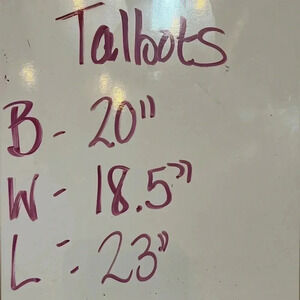 Talbots
B - 20"
W - 18.5"
L - 23"